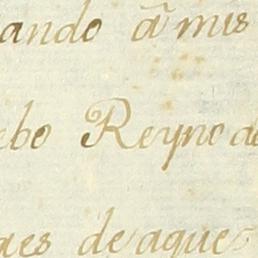 ando â mis
cbo Reyno de
ges de aques